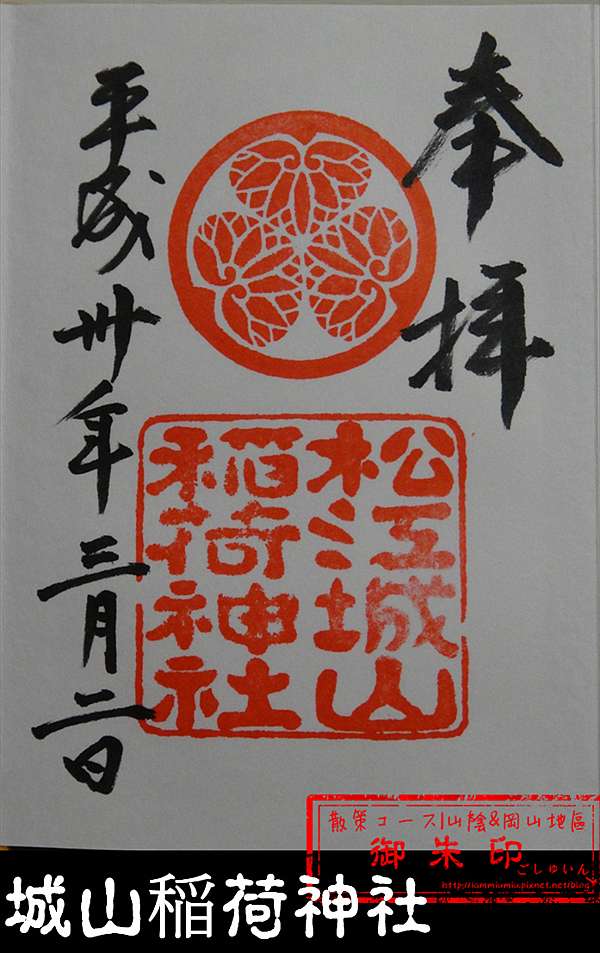 奉拝
松江城山
稲荷神社
平成卅年三月二日
散策コース山陰&岡山地區
御朱印
ごしゅいん
城山稲荷神社